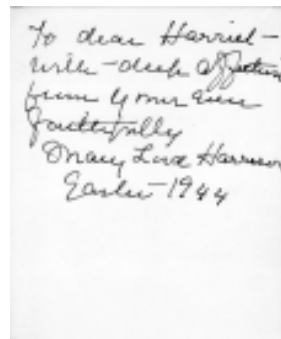 To dear Harriet -
with - deep affection
from yours ever
faithfully
Mary Lord Harrison
Easter - 1944